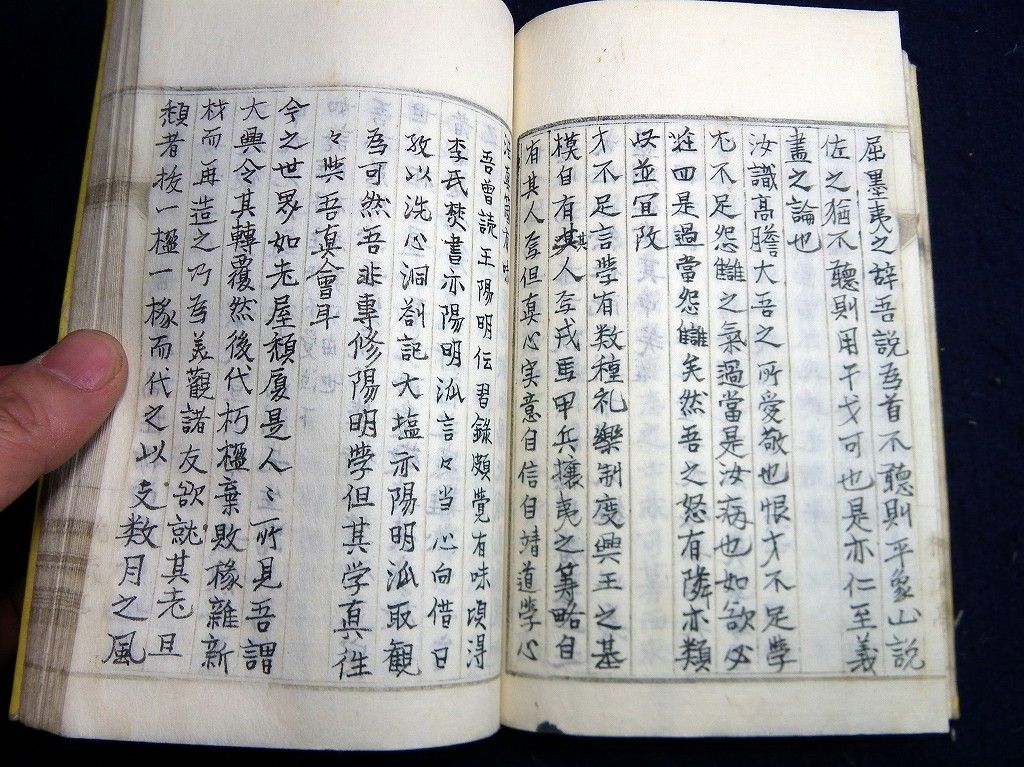 屈墨夷之辞吾説為首不聽則平象山説
佐之猶不聽則用干戈可也是亦仁至義
盡之論也
汝識高膽大吾之所愛敬也恨才不足学
尤不足怨讎之氣過當是汝病也如欲必
遂四是過當怨讎矣然吾之怒有隣亦類
此並宜改
才不足言学有数種礼樂制度興王之基
模自有其人在戎馬甲兵攘夷之筹略自
有其人在但真心实意自信自靖道学心
吾曾読王陽明伝習録頗覚有味頃得
李氏焚書亦陽明派言々当心向借日
孜以洗心洞劄記大塩亦陽明派取観
為可然吾非專修陽明學但其学真往
々與吾真會耳
今之世界如老屋頽厦是人々所見吾謂
大興令其轉覆然後代朽楹棄敗椽雜新
材而再造之乃為美觀諸友欲就其老且
頽者抜一楹一椽而代之以支数月之風